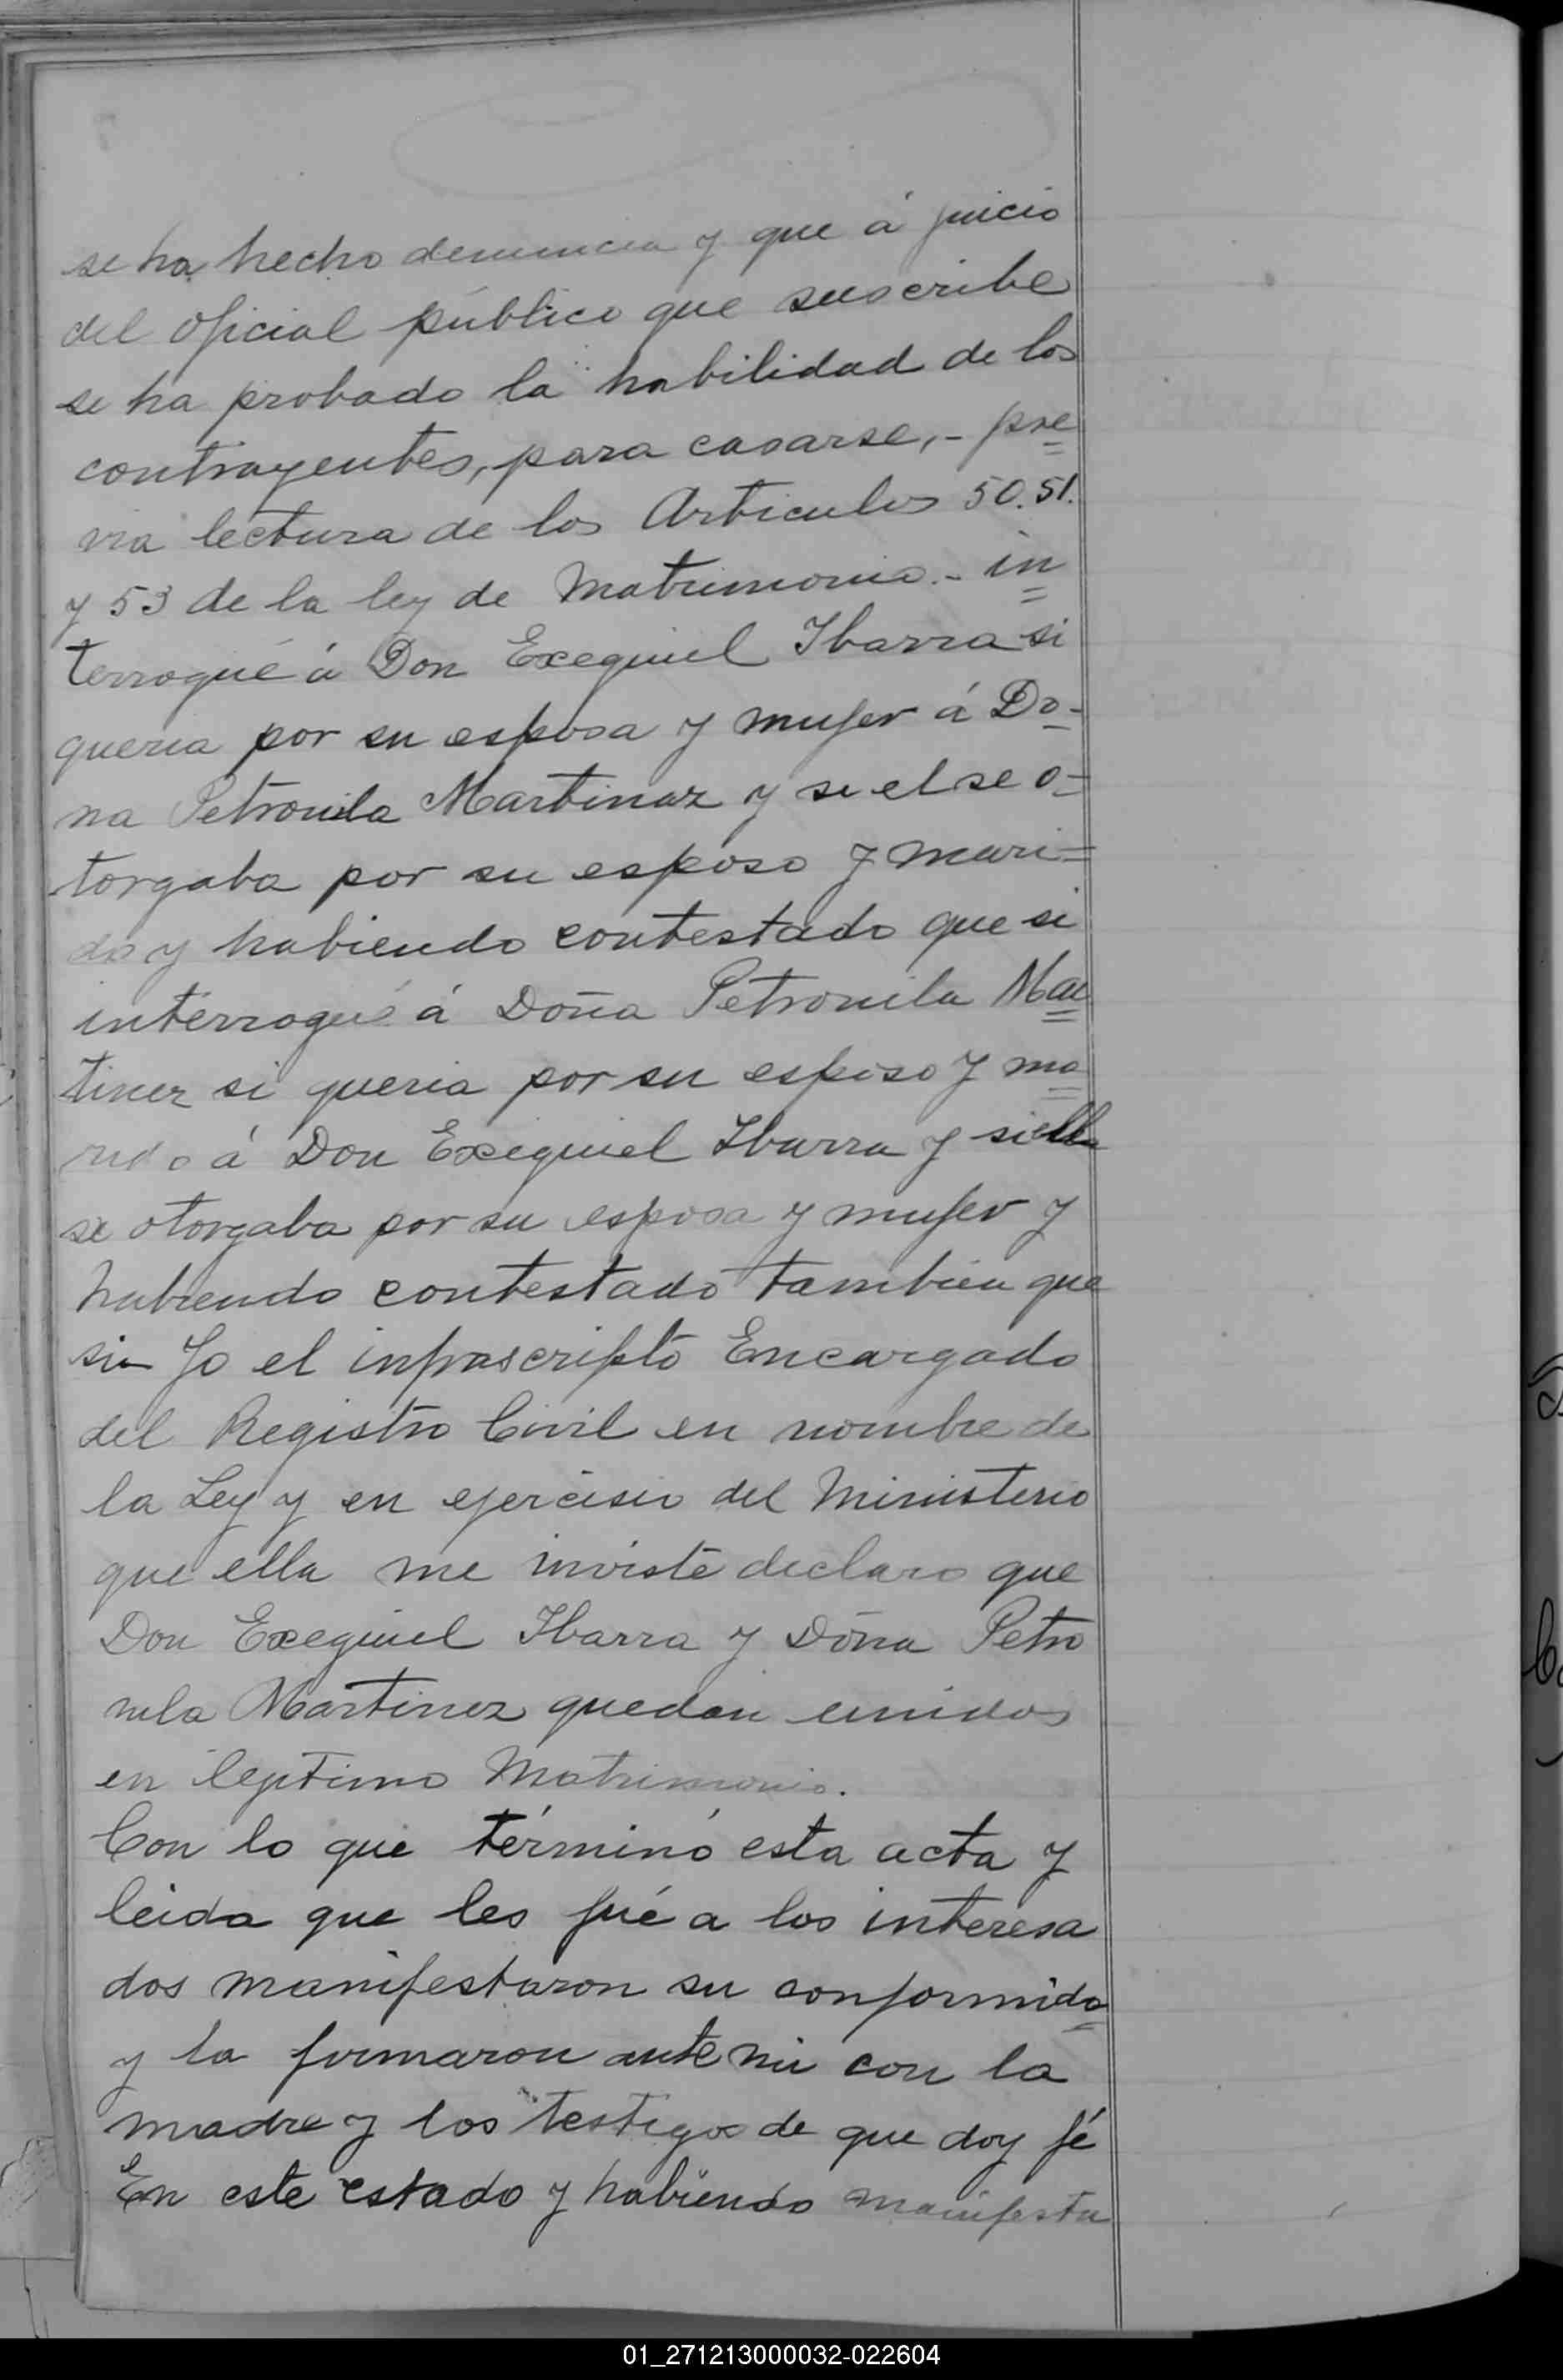 se ha hecho denuncia y que á juicio
del oficial público que suscribe
se ha probado la habilidad de los
contrayentes, para casarse,- pre
via lectura de los Articulos 50. 51.
y 53 de la ley de Matrimonio.- in
terrogué á Don Exequiel Ibarra si
queria por su esposa y mujer á Do-
ña Petronila Martinez y si el se o-
torgaba por su esposo y mari=
do y habiendo contestado que si
interrogué á Doña Petronila Mar
tinez si queria por su esposo y ma
rido á Don Exequiel Ibarra y si ella
se otorgaba por su esposa y mujer y
habiendo contestado tambien que
si- Yo el infrascripto Encargado
del Registro Civil en nombre de
la Ley y en ejercisio del Ministerio
que ella me inviste declaro que
Don Exequiel Ibarra y Doña Petro
nila Martinez quedan unidos
en legitimo Matrimonio.
Con lo que términó esta acta y
leida que les fué a los interesa
dos manifestaron su conformida
y la firmaron ante mi con la
madre y los testigos de que doy fé
En este estado y habiendo manifesta
01_271213000032-022604